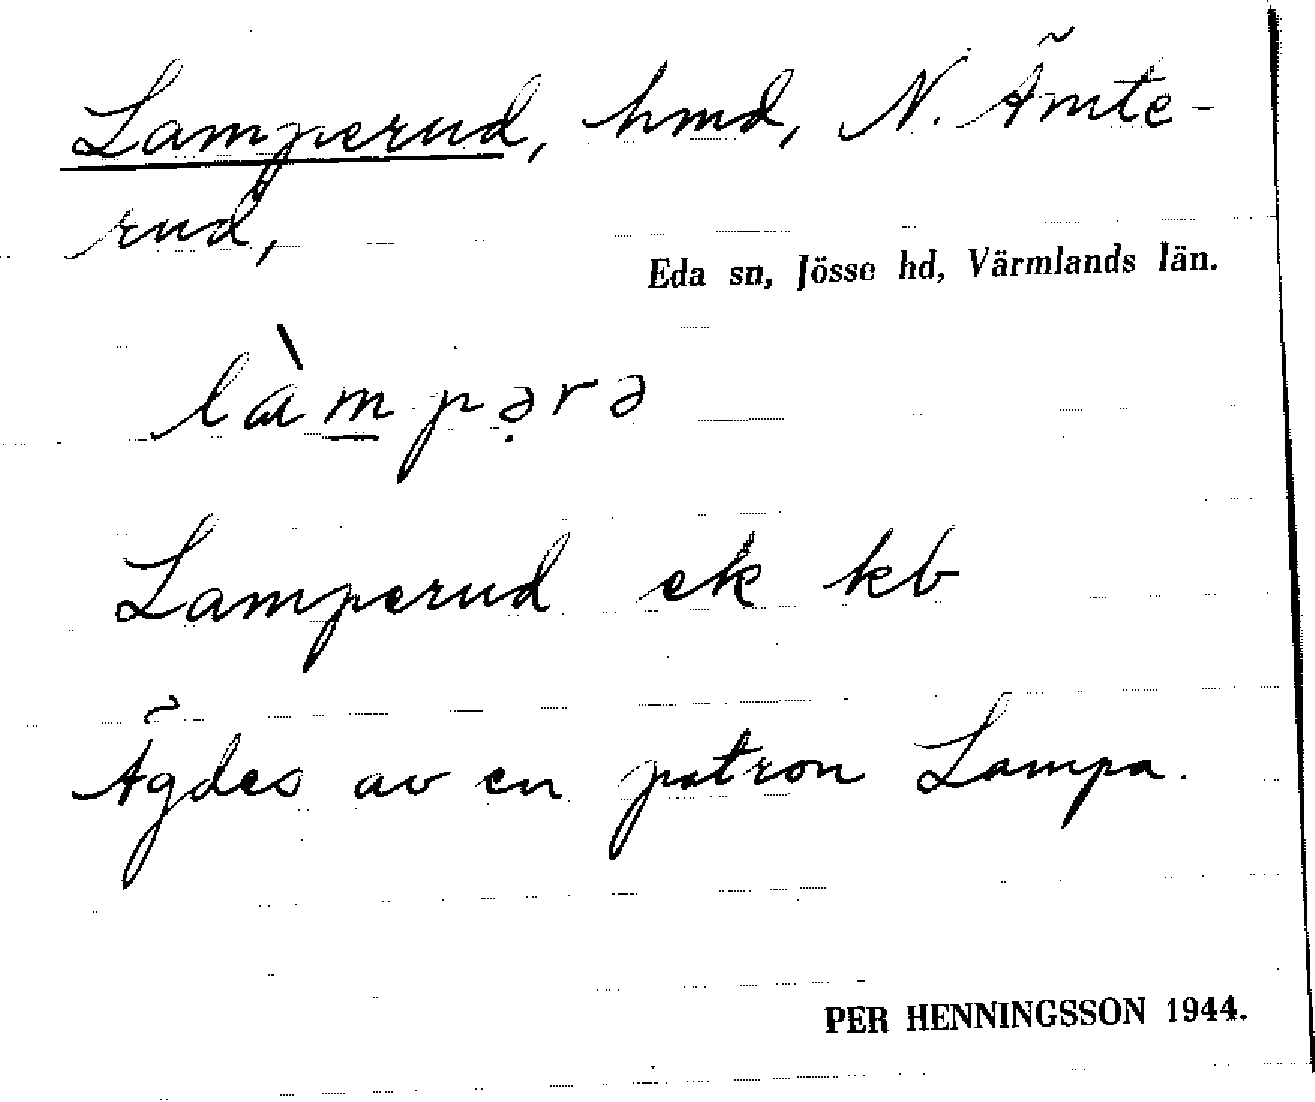 Lamperud, hmd, N. Ämte-
rud,
Eda sn, Jösse hd, Värmlands län.
làmpə̣rə
Lamperud ek kb
Ägdes av en patron Lampa.
PER HENNINGSSON 1944.